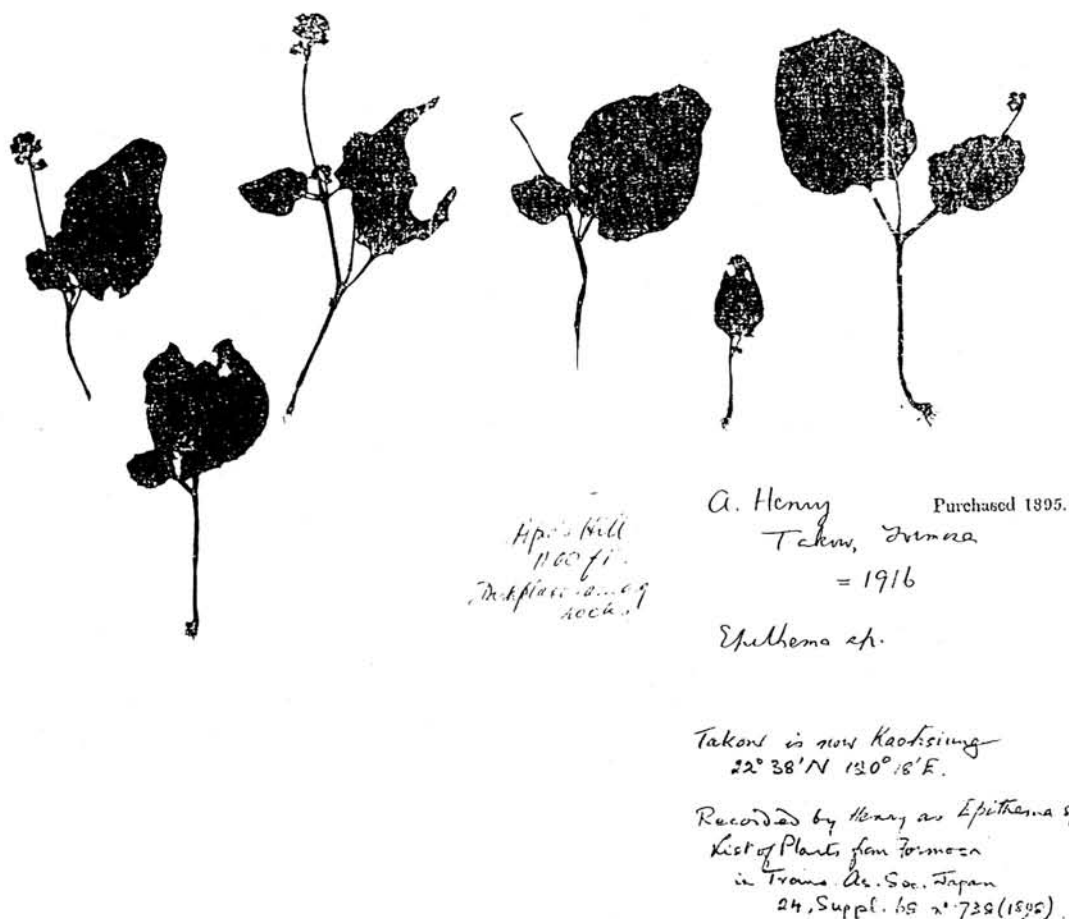 Hill
1100 ft.
Dark place among
rocks.
A. Henry Purchased 1895.
Takow, Formosa
= 1916
Epithema sp.
Takow is now Kaohsiung
22° 38'N 120° 18'E.
Recorded by Henry as Epithema s
List of Plants from Formosa
in Trans. As. Soc. Japan
24, Suppl.